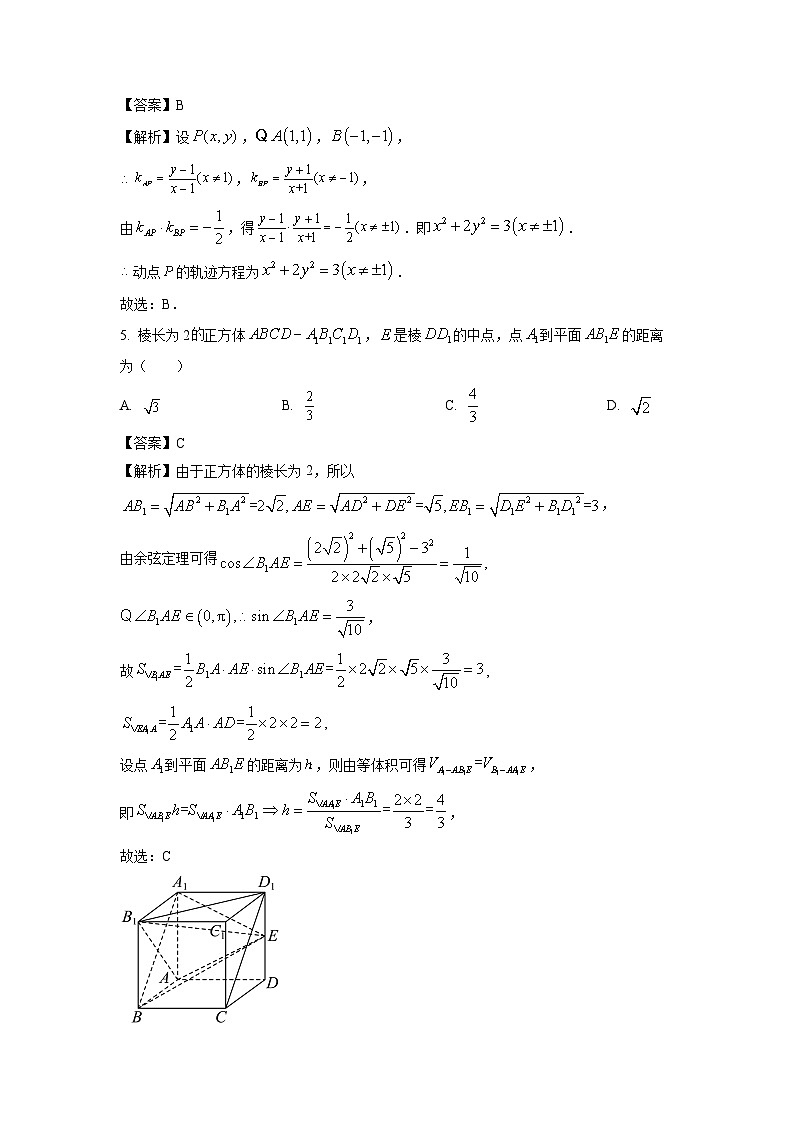 【答案】B
【解析】设 P(x, y)，Q A(1,1)，B(−1,−1)，
∴ k_{AP} = \frac{y−1}{x−1}(x ≠ 1)，k_{BP} = \frac{y+1}{x+1}(x ≠ −1)，
由 k_{AP} · k_{BP} = −\frac{1}{2}，得 \frac{y−1}{x−1} · \frac{y+1}{x+1} = −\frac{1}{2}(x ≠ ±1)．即 x² + 2y² = 3(x ≠ ±1)．
∴ 动点 P 的轨迹方程为 x² + 2y² = 3(x ≠ ±1)．
故选：B．
5. 棱长为 2的正方体 ABCD − A₁B₁C₁D₁，E 是棱 DD₁ 的中点，点 A₁ 到平面 AB₁E 的距离
为（　　）
A. √3　B. \frac{2}{3}　C. \frac{4}{3}　D. √2
【答案】C
【解析】由于正方体的棱长为 2，所以
AB₁ = \sqrt{AB² + B₁A²} =2√2, AE = \sqrt{AD² + DE²} =√5, EB₁ = \sqrt{D₁E² + B₁D₁²} =3，
由余弦定理可得 cos∠B₁AE = \frac{(2√2)² + (√5)² − 3²}{2×2√2×√5} = \frac{1}{√10}，
Q ∠B₁AE ∈ (0, π), ∴ sin∠B₁AE = \frac{3}{√10}，
故 S_{√B₁AE} = \frac{1}{2} B₁A · AE · sin∠B₁AE = \frac{1}{2} × 2√2 × √5 × \frac{3}{√10} = 3，
S_{√EA₁A} = \frac{1}{2} A₁A · AD = \frac{1}{2} × 2 × 2 = 2，
设点 A₁ 到平面 AB₁E 的距离为 h，则由等体积可得 V_{A₁−AB₁E} = V_{B₁−AA₁E}，
即 S_{√AB₁E} h = S_{√AA₁E} · A₁B₁ ⇒ h = \frac{S_{√AA₁E} · A₁B₁}{S_{√AB₁E}} = \frac{2×2}{3} = \frac{4}{3}，
故选：C
A₁ D₁
B₁
C₁ E
A D
B C